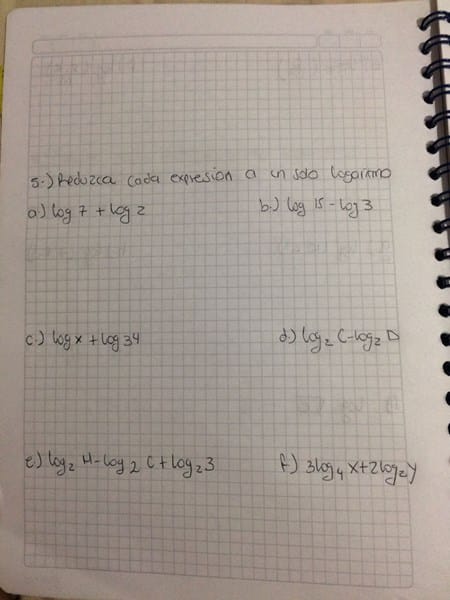 5.) Reduzca cada expresion a un solo logaritmo
a.) log 7 + log 2 b.) log 15 - log 3
c.) log x + log 34 d.) log₂ C - log₂ D
e.) log₂ H - log₂ C + log₂ 3 f.) 3 log₄ x + 2 log₂ y